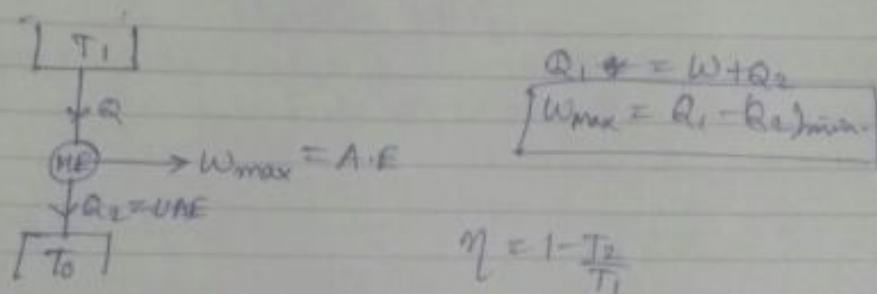 T1
Q
HE → Wmax = A.E
Q2 = UAE
T0
Q1 = W + Q2
Wmax = Q1 - Q2)min.
η = 1 - T2/T1